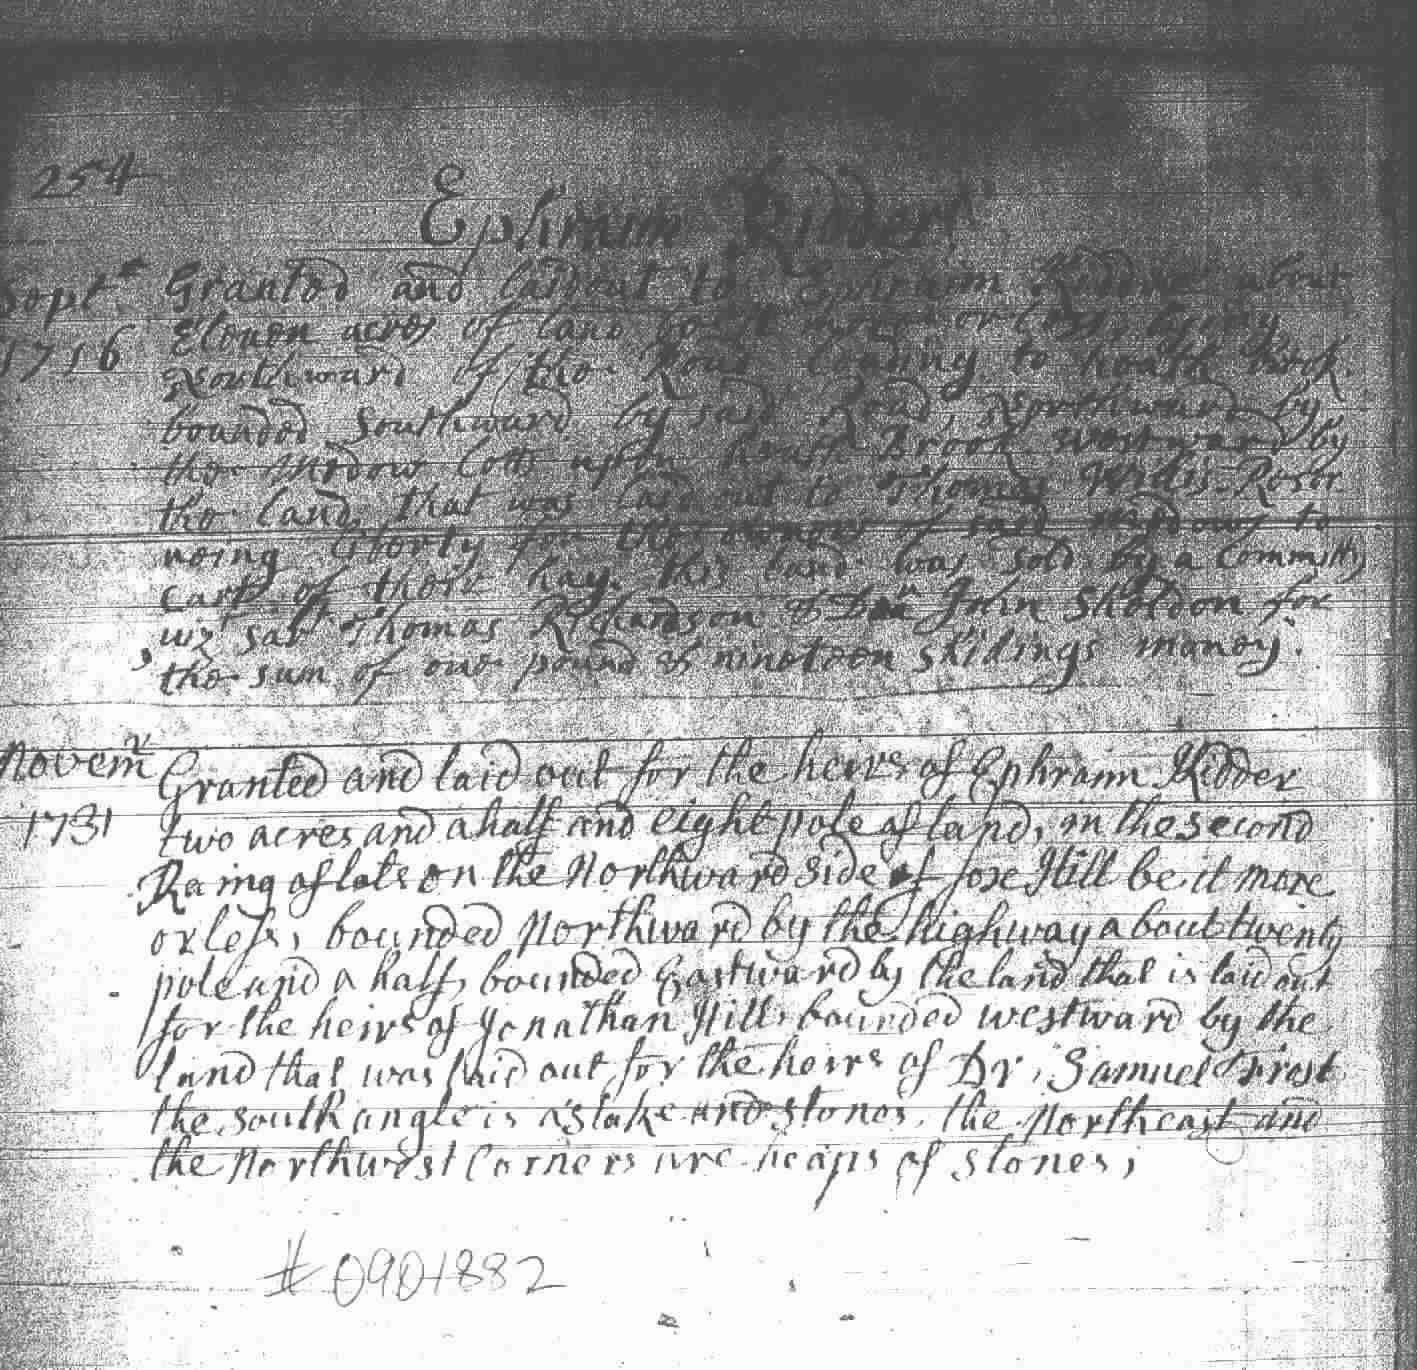 254
Ephraim Kidder
Sept.r Granted and laidout to Ephraim Kidder about
1716 Eleven acres of land be it more or less, lying
Northward of the Road leading to heath brook
bounded Southward by said Road, Northward by
the medow lotts upon heath Brook westward by
the land that was laid out to Thomas Willis Reser
veing liberty for the owners of said medows to
cart of their hay. this land was sold by a Committy
viz Sart Thomas Richardson & John Sheldon for
the sum of one pound & nineteen shillings money.
Novemr Granted and laid out for the heirs of Ephraim Kidder
1731 two acres and a half and eight pole of land, in the second
Raing of lots on the Northward side of fox Hill be it more
or less, bounded Northward by the highway about twenty
pole and a half, bounded Eastward by the land that is laid out
for the heirs of Jonathan Hill, bounded westward by the
land that was laid out for the heirs of Dr, Samuel Frost
the south angle is a stake and stones, the Northeast and
the Northwest Corners are heaps of stones,
# 0901882